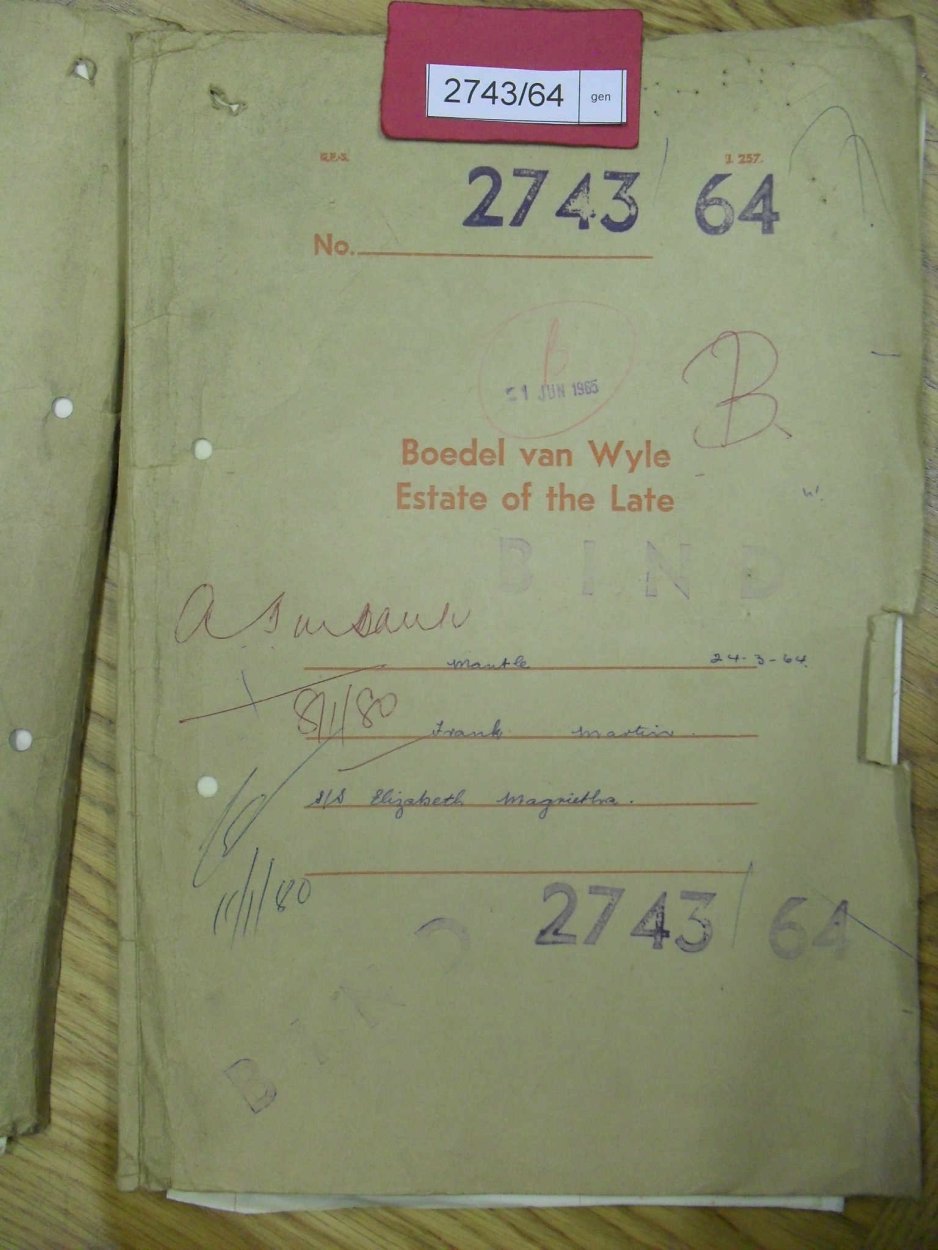 2743/64 gen
G.P.-S. J. 257.
2743 / 64
No.
B
21 JUN 1965
B
Boedel van Wyle
Estate of the Late
BIND
Mantle 24-3-64
8/1/80
Frank Martin.
S/S Elizabeth Magrietha.
11/1/80
2743 / 64
BIND